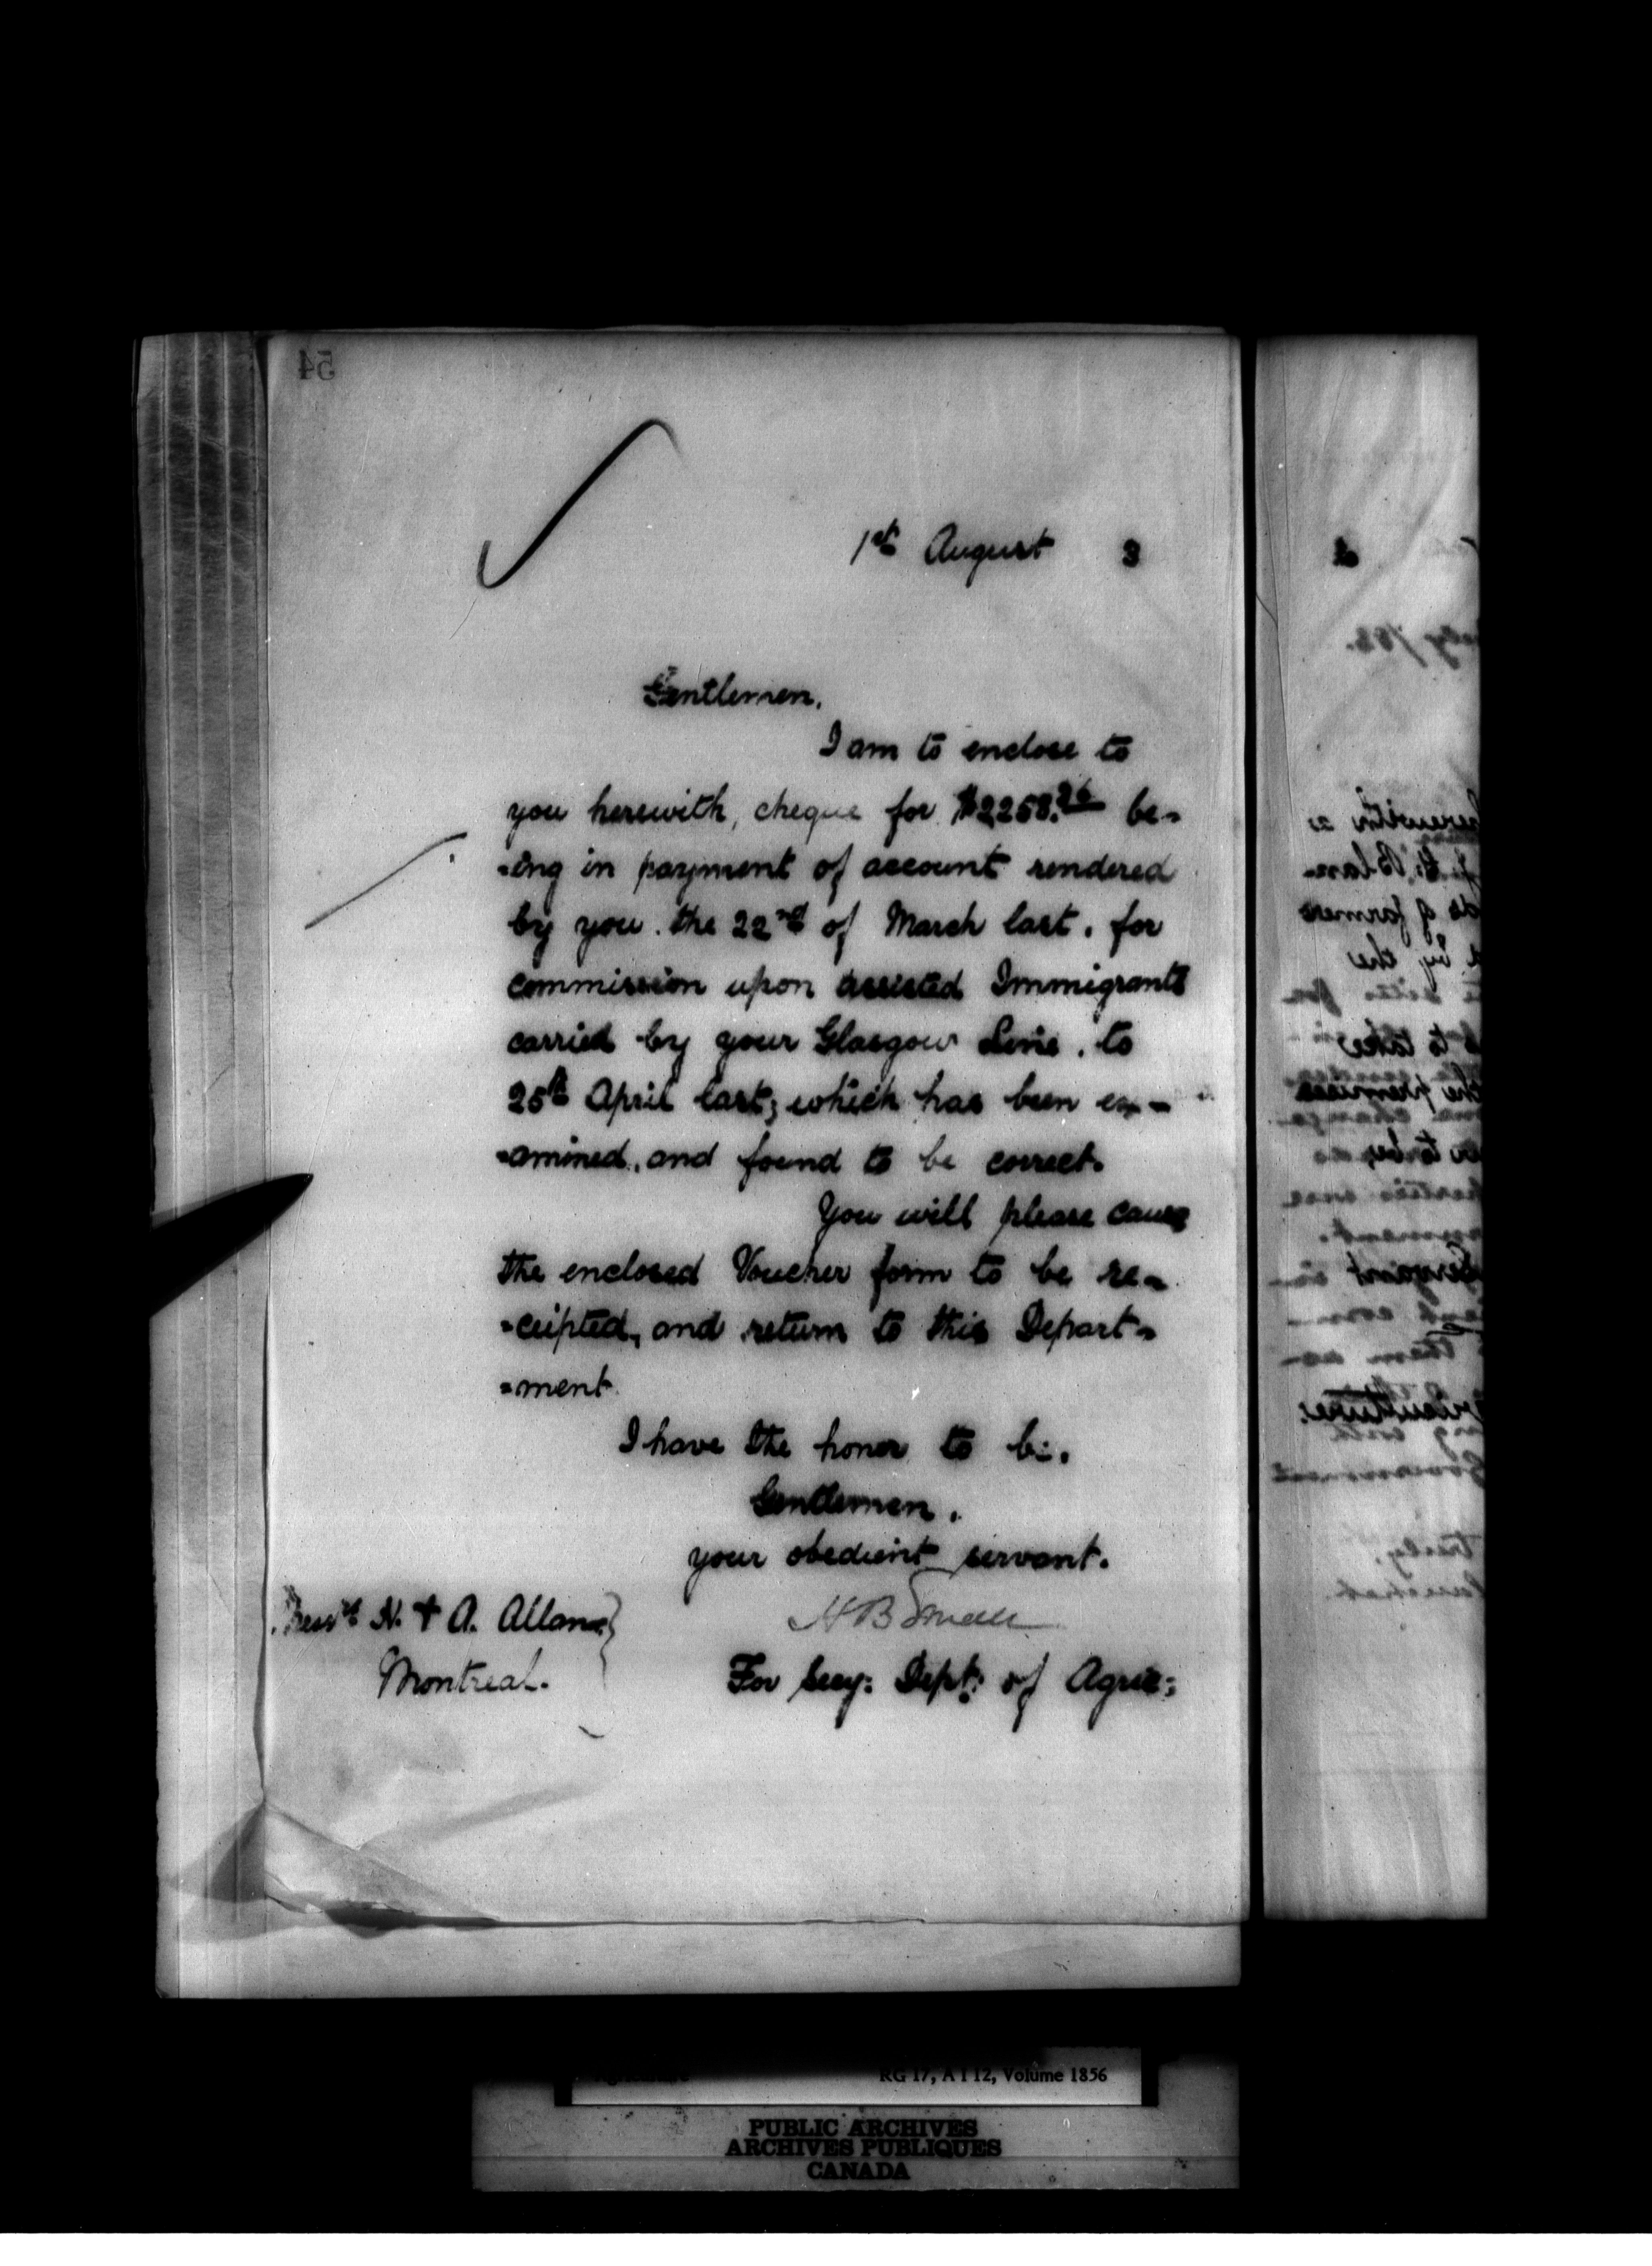 54
1st August 3
Gentlemen,
I am to enclose to
you herewith, cheque for $2,258.26 be-
=ing in payment of account rendered
by you the 22nd of March last, for
commission upon assisted Immigrants
carried by your Glasgow Line, to
25th April last, which has been ex-
=amined, and found to be correct.
You will please cause
the enclosed Voucher form to be re-
=ceipted, and return to this Depart-
=ment.
I have the honor to be,
Gentlemen,
your obedient servant.
Messrs H. & A. Allan
Montreal.
H B Small
For Secy: Dept: of Agric:
RG 17, A I 12, Volume 1856
PUBLIC ARCHIVES
ARCHIVES PUBLIQUES
CANADA